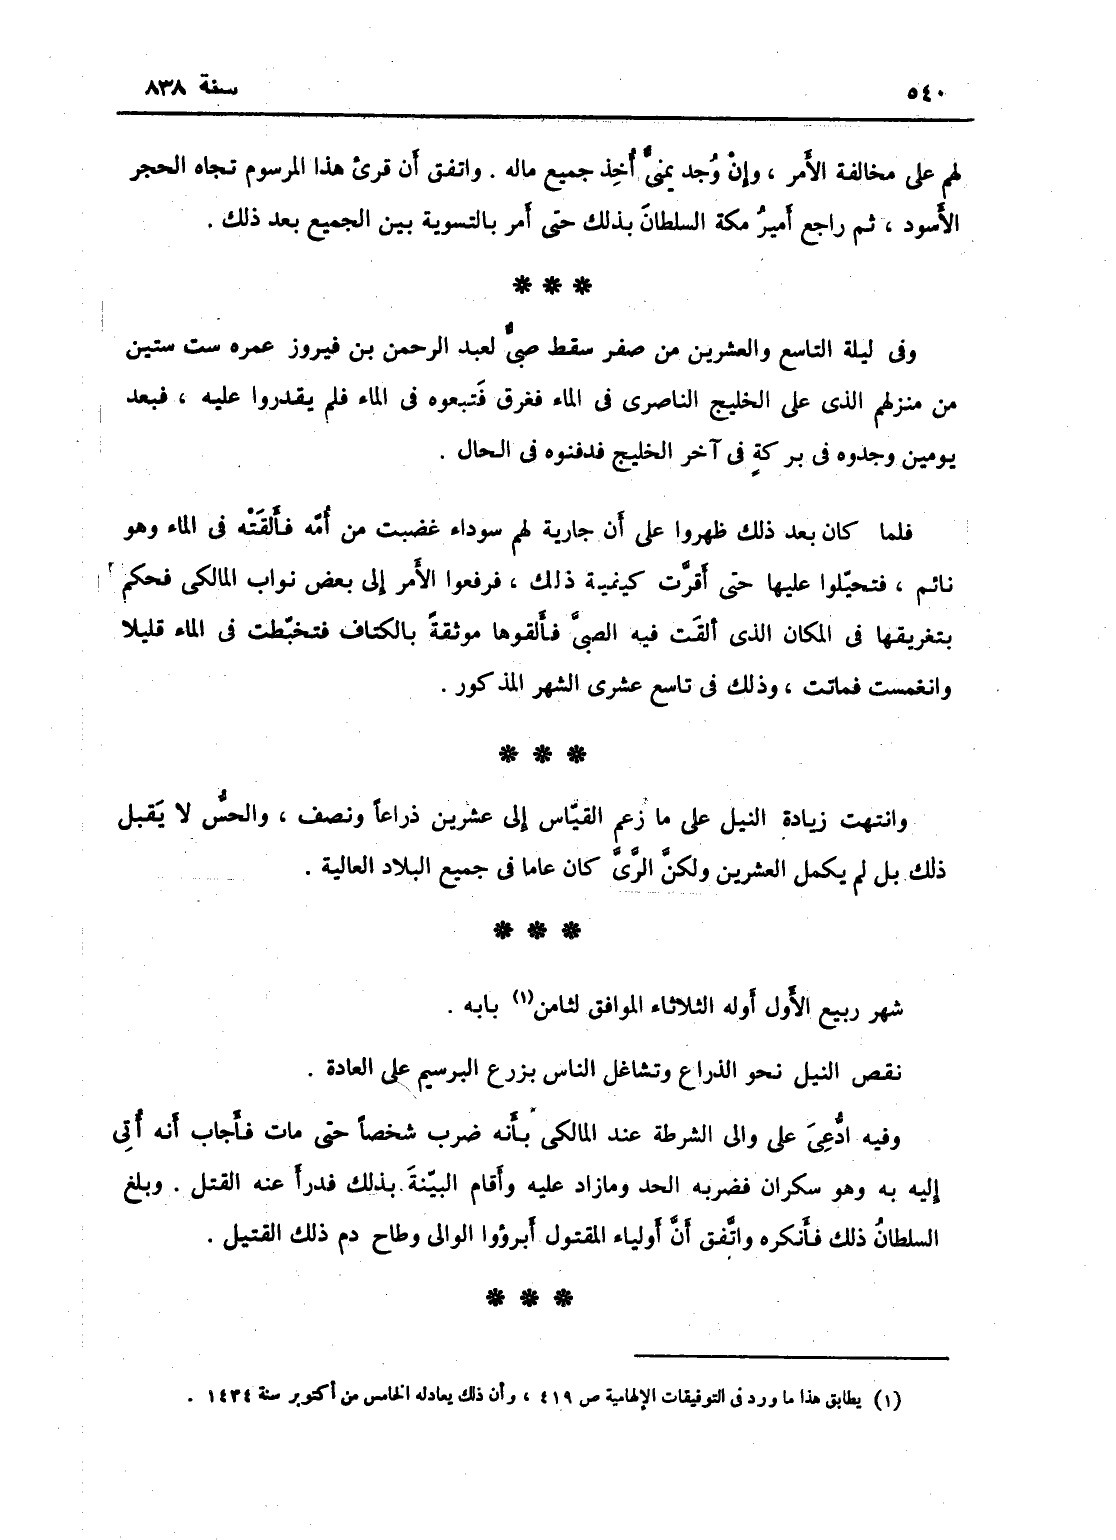 ٥٤٠
سنة ٨٣٨
لهم على مخالفة الأَمر ، وإنْ وُجد يمنىٌّ أُخِذ جميع ماله . واتفق أَن قرئ هذا المرسوم تجاه الحجر
الأَسود ، ثم راجع أَميرُ مكة السلطانَ بذلك حتى أَمر بالتسوية بين الجميع بعد ذلك .
* * *
وفى ليلة التاسع والعشرين من صفر سقط صبىٌّ لعبد الرحمن بن فيروز عمره ست ستين
من منزلهم الذى على الخليج الناصرى فى الماء فغرق فَتبعوه فى الماء فلم يقدروا عليه ، فبعد
يومين وجدوه فى بركةٍ فى آخر الخليج فدفنوه فى الحال .
فلما كان بعد ذلك ظهروا على أَن جارية لهم سوداء غضبت من أُمّه فأَلقَتْه فى الماء وهو
نائم ، فتحيّلوا عليها حتى أَقرَّت كينمية ذلك ، فرفعوا الأَمر إلى بعض نواب المالكى فحكم
بتغريقها فى المكان الذى ألقَت فيه الصبىَّ فأَلقوها موثقةً بالكتاف فتخبّطت فى الماء قليلا
وانغمست فماتت ، وذلك فى تاسع عشرى الشهر المذكور .
* * *
وانتهت زيادة النيل على ما زعم القيّاس إلى عشرين ذراعاً ونصف ، والحسُّ لا يَقبل
ذلك بل لم يكمل العشرين ولكنَّ الرَّىَّ كان عاما فى جميع البلاد العالية .
* * *
شهر ربيع الأَول أَوله الثلاثاء الموافق لثامن(١) بابه .
نقص النيل نحو الذراع وتشاغل الناس بزرع البرسيم على العادة .
وفيه ادُّعِىَ على والى الشرطة عند المالكى بأَنه ضرب شخصاً حتى مات فأَجاب أَنه أُتِى
إليه به وهو سكران فضربه الحد ومازاد عليه وأَقام البيّنةَ بذلك فدرأَ عنه القتل . وبلغ
السلطانُ ذلك فأَنكره واتَّفق أَنَّ أَولياء المقتول أَبرؤوا الوالى وطاح دم ذلك القتيل .
* * *
(١) يطابق هذا ما ورد فى التوفيقات الإلهامية ص ٤١٩ ، وأن ذلك يعادله الخامس من أكتوبر سنة ١٤٣٤ .